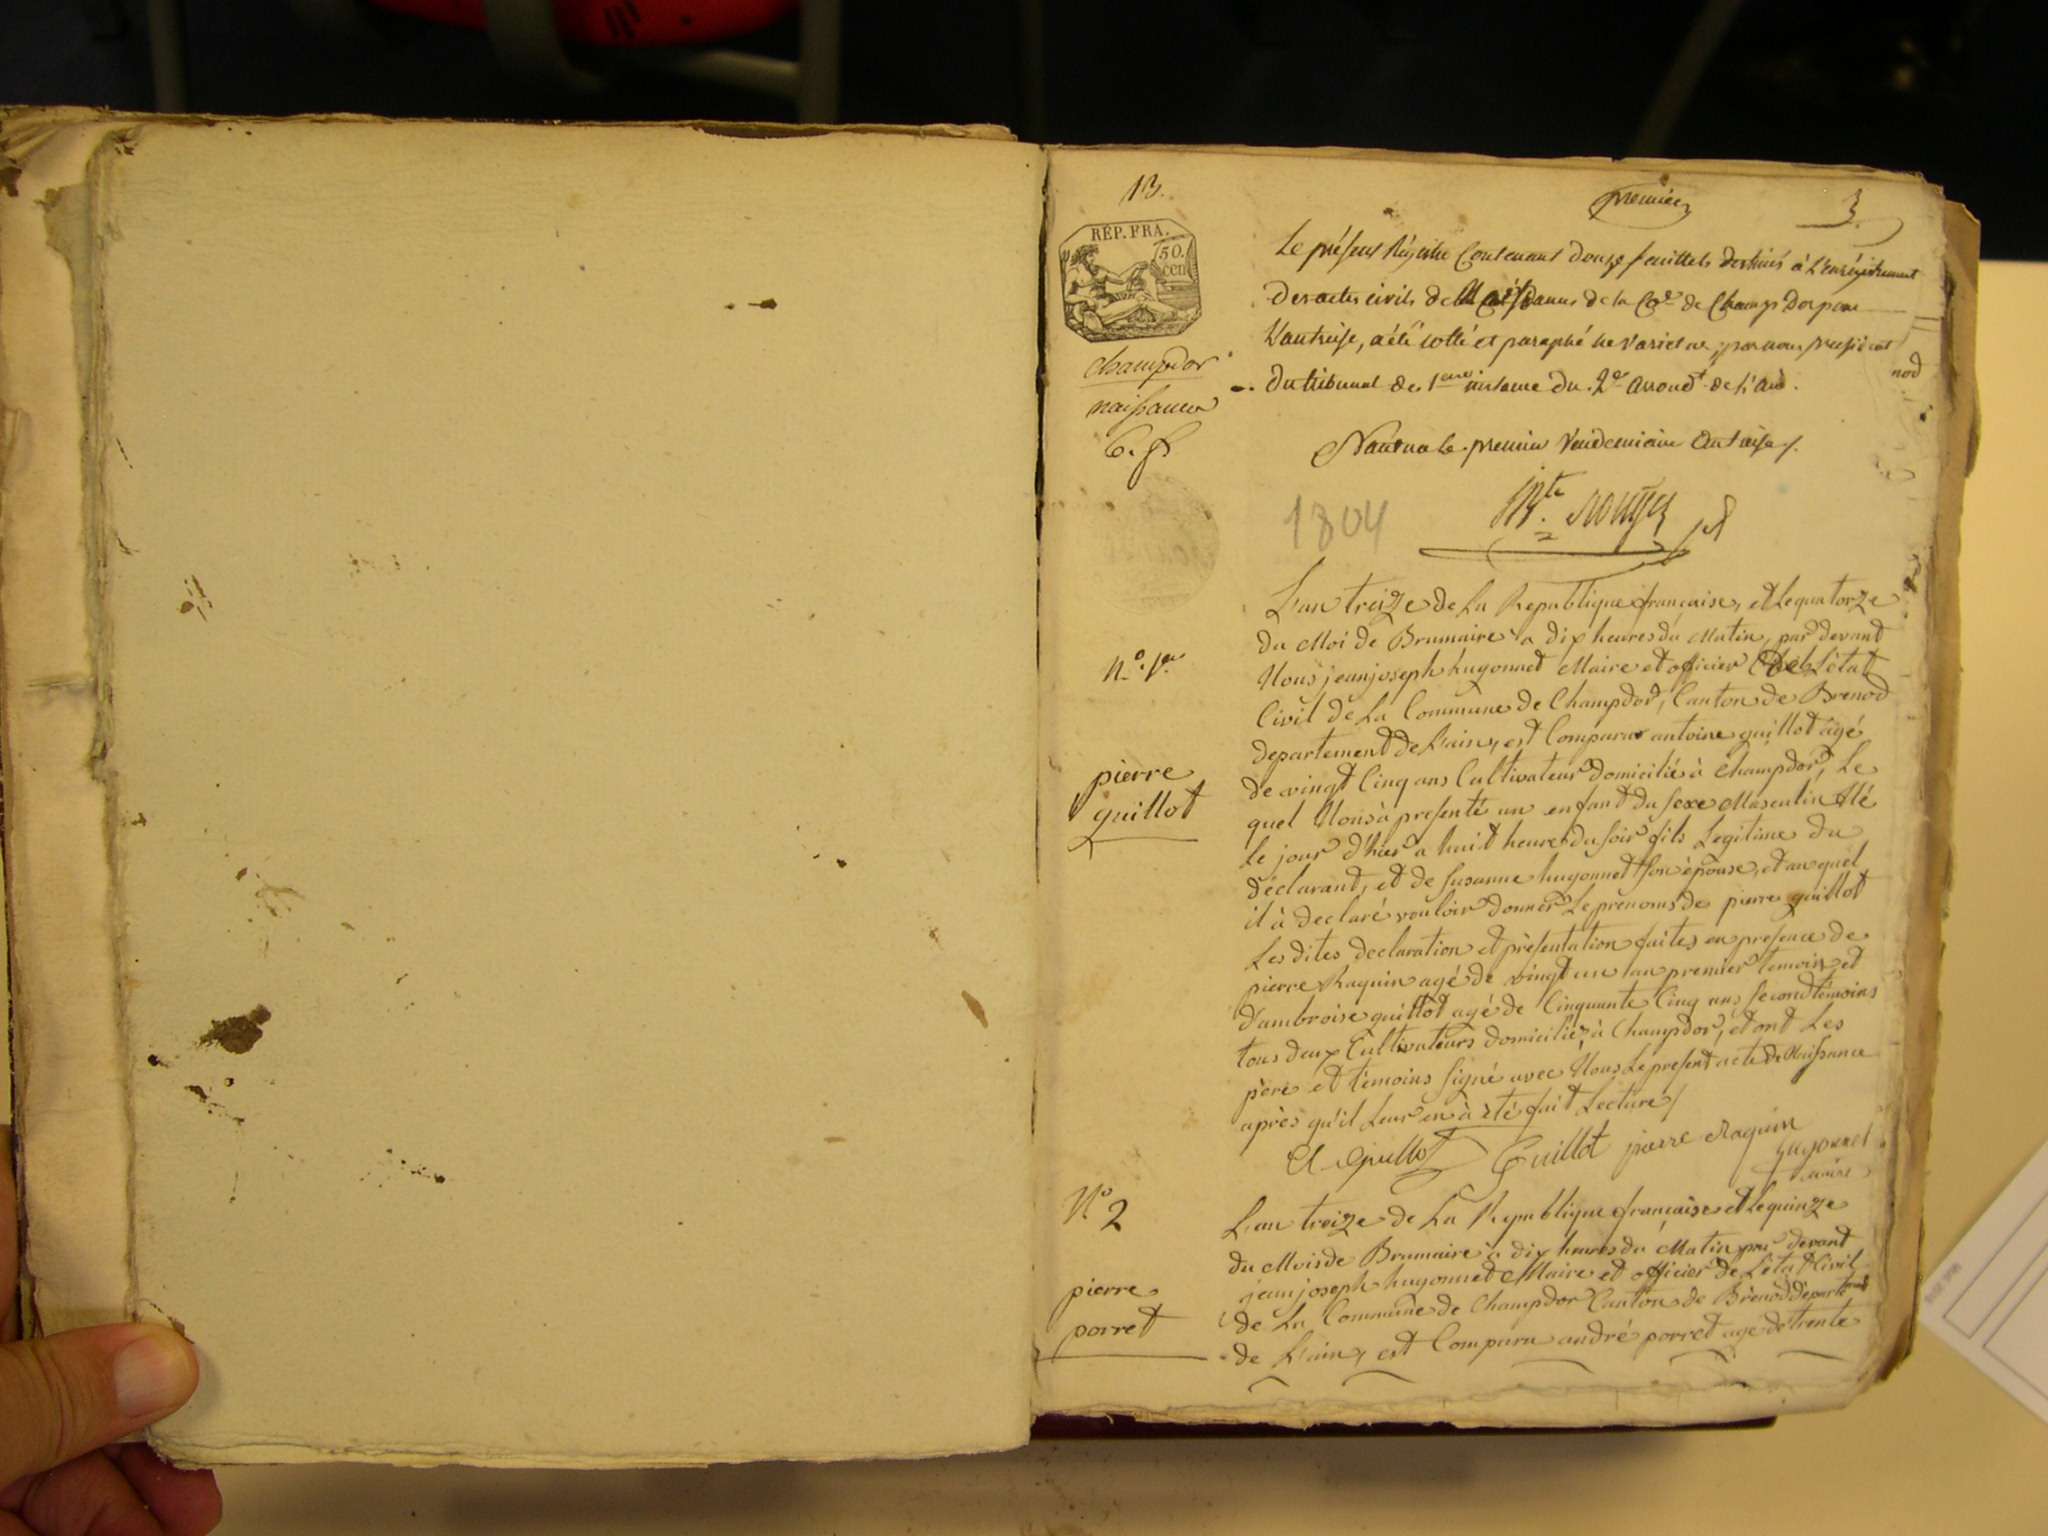 13.
premier
RÉP. FRA.
50.
cen
Le présent Régistre Contenant douze feuillets destinés à l'enrégistrement
Des actes civils de Naissances de la Cne de Champ Dor pour
L'an treise, a été cotté et paraphé ne varietur, par nous president
Du tribunal de 1ere instance du 2e arrondt de l'ain.
champdor
naissances
6. f.
Nantua le premier Vendemiaire an treise /.
nod
1804
L'an treize de La Republique française, et Lequatorze
du Moi de Brumaire a dix heures du Matin, par devant
N.o 1er
Nous jean joseph hugonnet Maire et officier de L'état
Civil de La Commune de Champdor, Canton de Brenod
departement de L'ain, est Comparu antoine guillot âgé
pierre
guillot
de vingt Cinq ans Cultivateur domicilié à Champdor, Le
quel Nous à presenté un enfant du sexe Masculin Né
Le jour d'hier a huit heure du soir fils Legitime du
déclarant, et de susanne hugonnet son épouse, et au quel
il à declaré vouloir donner Le prenoms de pierre guillot
Les dites declaration et présentation faites en presence de
pierre Raguin agé de vingt un an premier temoin et
d'ambroise guillot agé de Cinquante Cinq ans second témoins
tous deux Cultivateurs domicilié à Champdor, et ont Les
père et témoins signé avec Nous Le present acte de Naissance
après qu'il Leur en à été fait Lecture /
A guillot Guillot pierre Raguin
hugonnet
maire
N.o 2
L'an treize de La Republique française et Le quinze
du Mois de Brumaire a dix heures du Matin par devant
jean joseph hugonnet Maire et officier de L'état Civil
pierre
porret
de La Commune de Champdor Canton de Brenod departement
de L'ain, est Comparu andré porret agé de trente